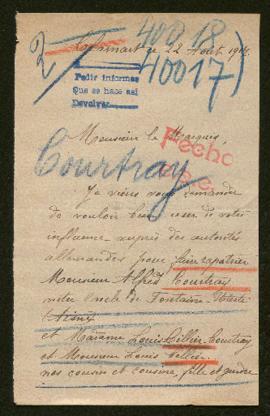 2
40018
40017)
ce 22 Août 191
Pedir informes
Que se hace así
Devolver
Monsieur le Marquis,
Fecho
Courtray
Je viens vous demander
de vouloir bien user de votre
influence auprès des autorités
allemandes pour faire rapatrier
Monsieur Alfred Courtray
notre oncle de Fontaine
(Aisne)
et Madame Louis Courtray
et Monsieur Louis
nos cousin et cousine, fille et gendre